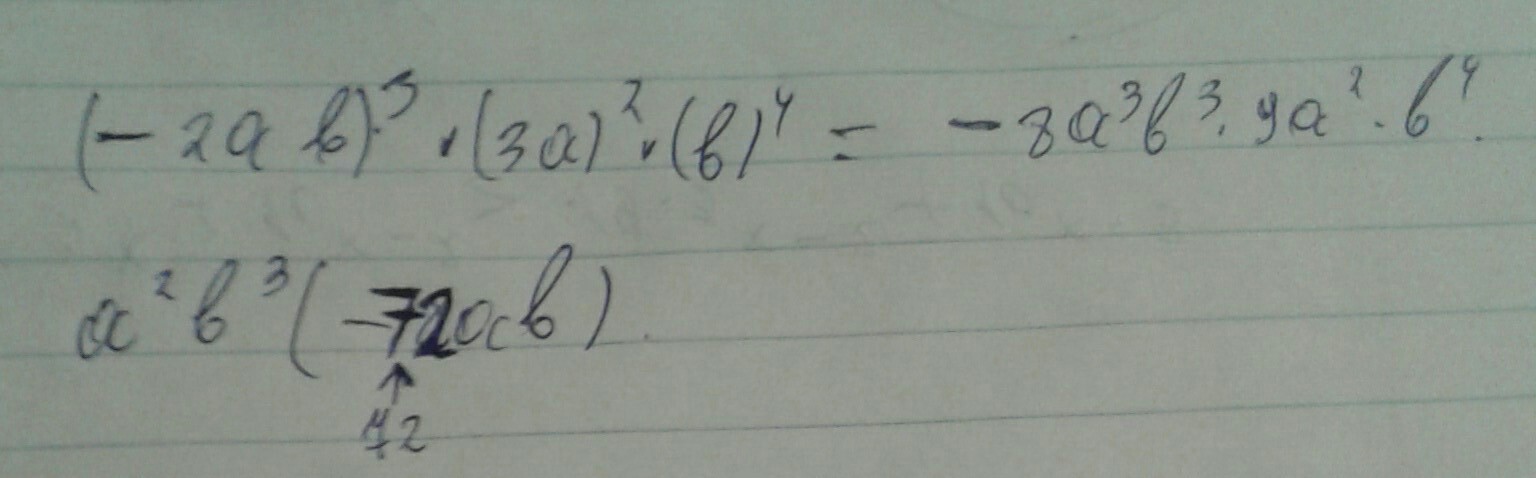 (-2ab)³ · (3a)² · (b)⁴ = -8a³b³ · 9a² · b⁴.
a²b³(-72ab).
↑
72